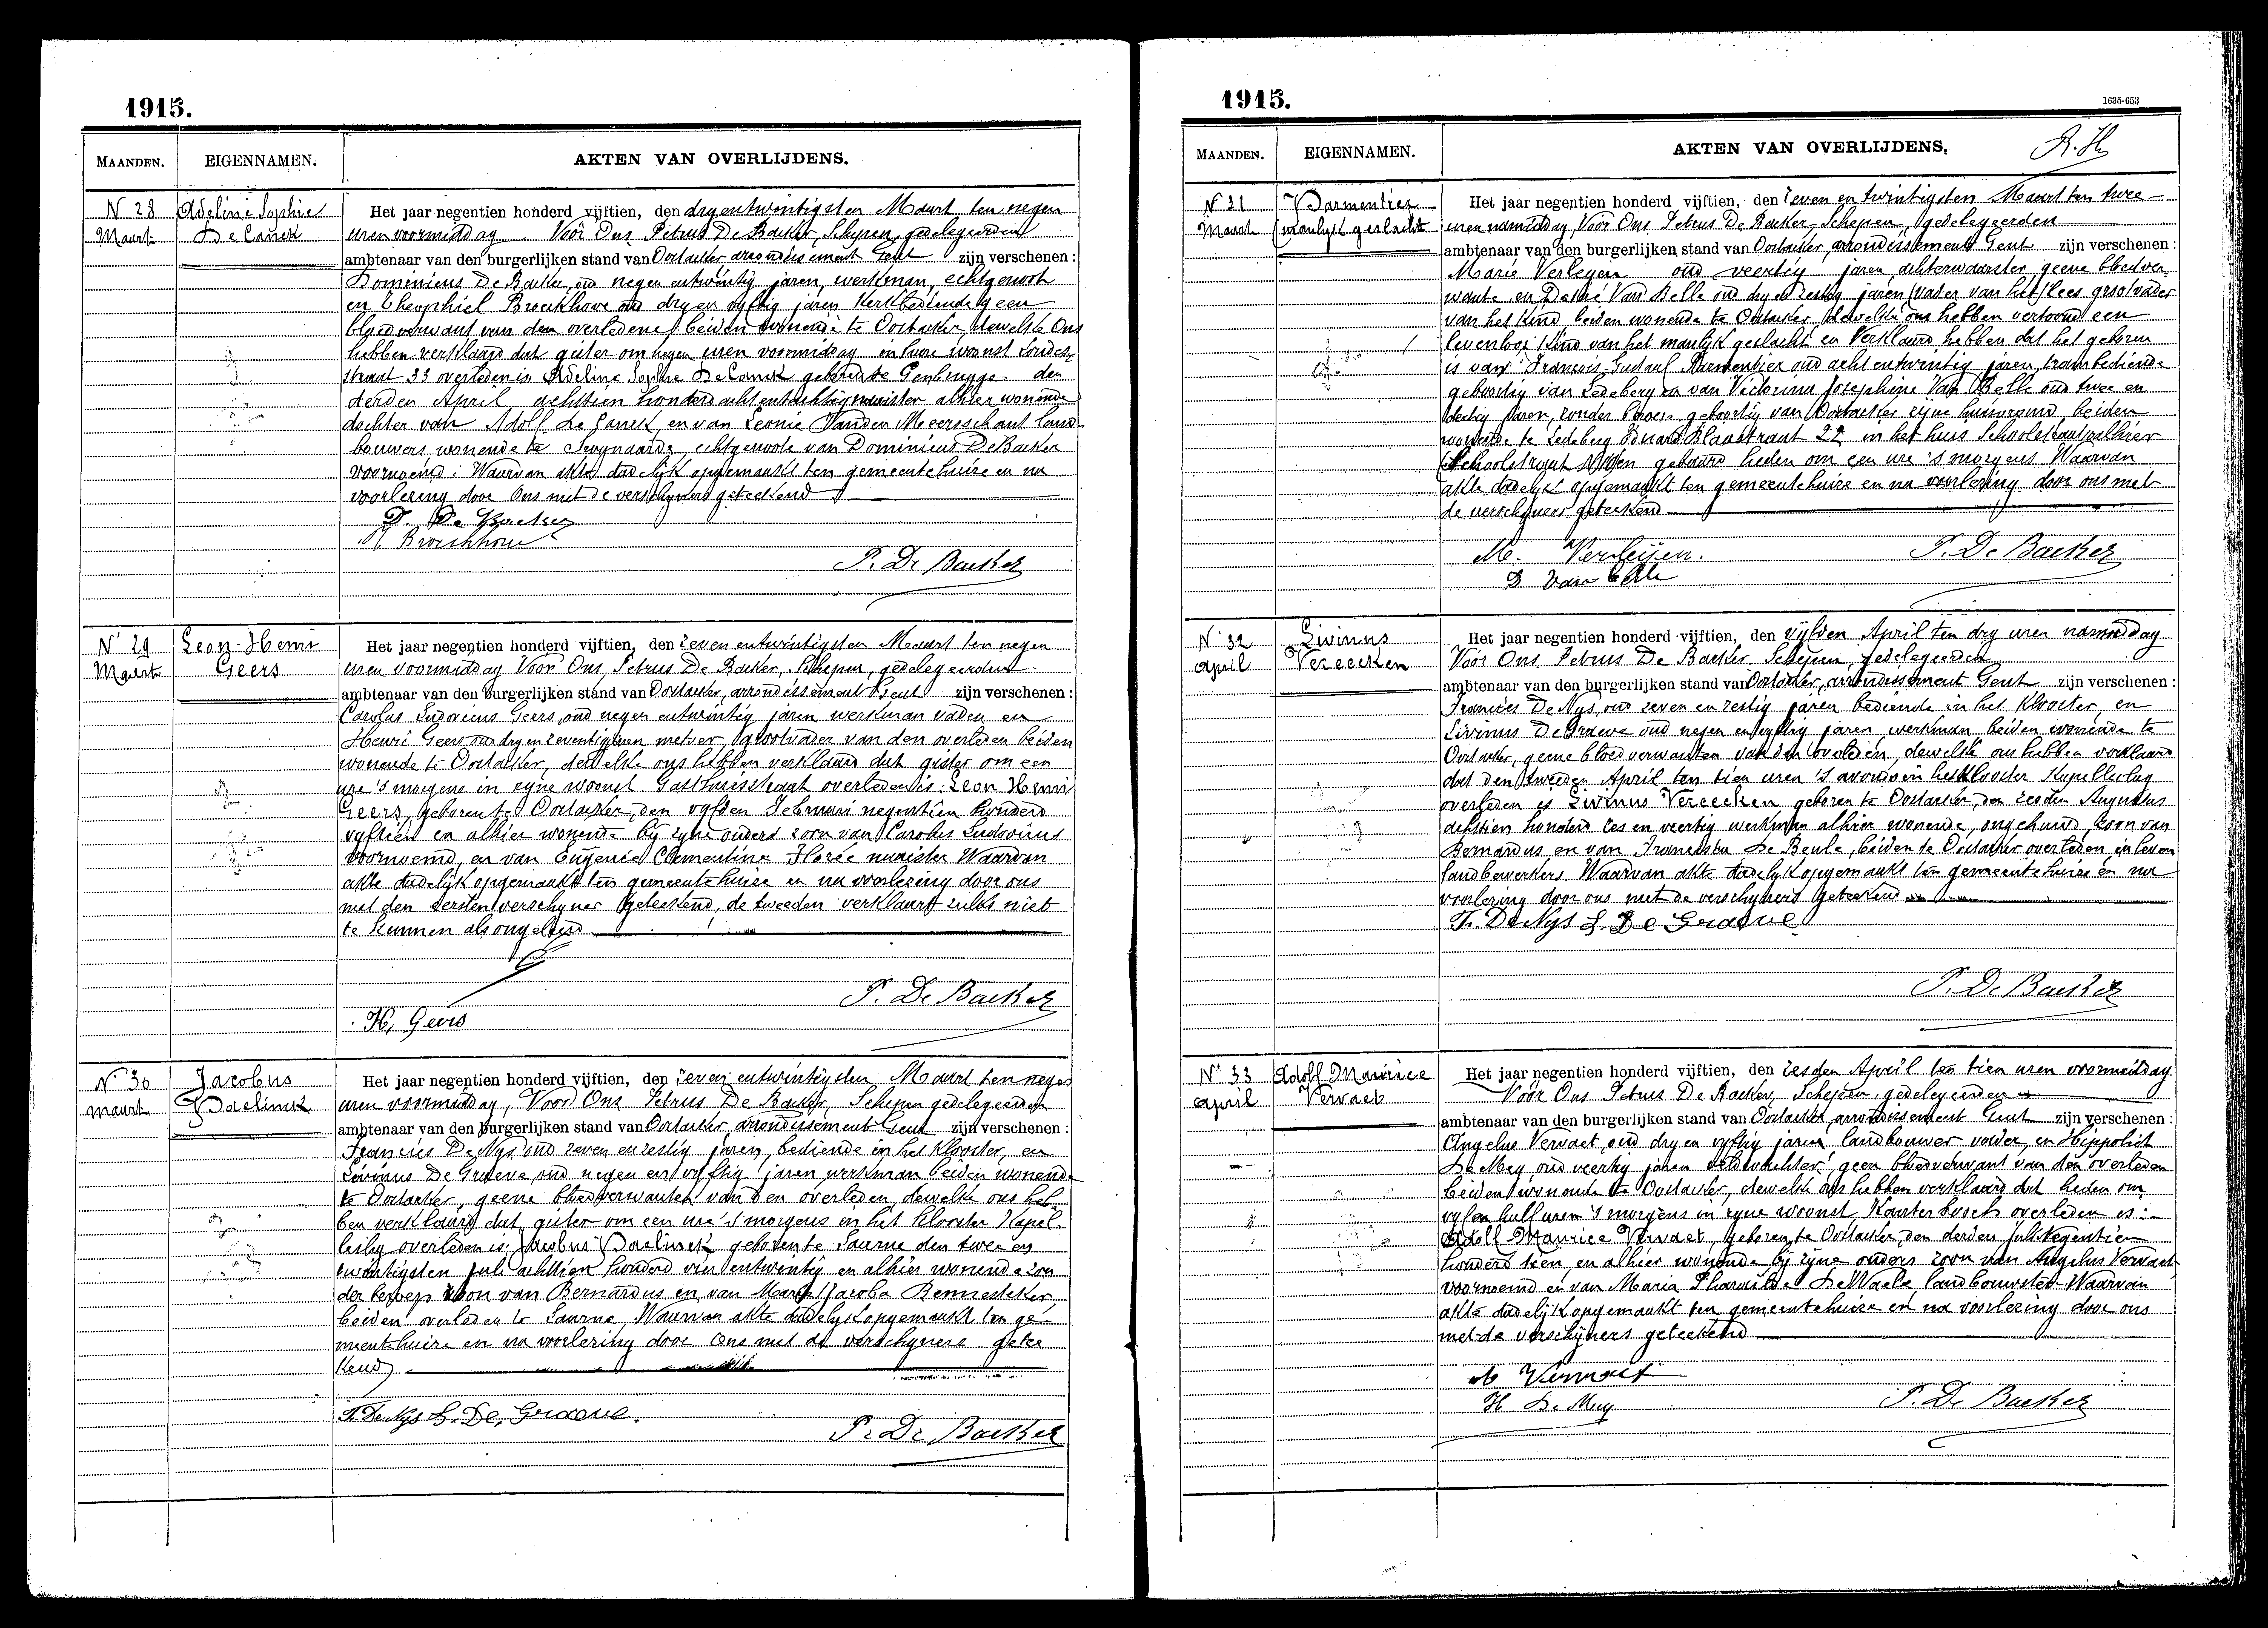 1915.
MAANDEN. EIGENNAMEN. AKTEN VAN OVERLIJDENS.
N 28 Maart
Adeline Sophie De Canck
Het jaar negentien honderd vijftien, den dryentwintigsten Maart ten negen
uren voormiddag Voor Ons Petrus De Backer, Schepen, gedelegeerden
ambtenaar van den burgerlijken stand van Oostacker arrondissement Gent zijn verschenen :
Dominicus De Backer, oud negen entwintig jaren, werkman, echtgenoot
en Theophiel Broeckhove oud dry en vyftig jaren kerkbediende geen
bloedverwant van den overledene, beiden wonende te Oostacker, dewelke Ons
hebben verklaard dat gister om negen uren voormiddag in hare woonst
straat 33 overleden is Adeline Sophie De Canck geboren te Genbrugge den
derden April achttien honderd achtentachtig alhier wonende
dochter van Adolf De Canck en van Leonie Vanden Meersschaut land
bouwers wonende te Swynaarde, echtgenoote van Dominicus De Backer
voornoemd. Waarvan akte dadelijk opgemaakt ten gemeentehuize en na
voorlezing door Ons met de verschijners geteekend
D. De Backer
Broeckhove
P. De Backer
N 29 Maart
Leon-Henri Geers
Het jaar negentien honderd vijftien, den zeven entwintigsten Maart ten negen
uren voormiddag Voor Ons, Petrus De Backer, Schepen, gedelegeerden
ambtenaar van den burgerlijken stand van Oostacker, arrondissement Gent zijn verschenen :
Carolus Ludovicus Geers, oud negen entwintig jaren werkman vader, en
Henri Geers oud dry en zeventig jaren metser, grootvader van den overleden beiden
wonende te Oostacker, dewelke ons hebben verklaard dat gister om een
ure 's morgens in zyne woonst Gasthuisstraat overleden is: Leon Henri
Geers, geboren te Oostacker, den vyfden Februari negentien honderd
vyftien en alhier wonende bij zyne ouders zoon van Carolus Ludovicus
voornoemd, en van Eugenie Clementine Florée Waarvan
akte dadelijk opgemaakt ten gemeentehuize en na voorlezing door ons
met den eersten verschyner geteekend, de tweeden verklaart zulks niet
te kunnen als ongeleerd
P. De Backer
Geers
N 30 Maart
Jacobus Paelinck
Het jaar negentien honderd vijftien, den zeven entwintigsten Maart ten negen
uren voormiddag, Voor Ons Petrus De Backer, Schepen gedelegeerden
ambtenaar van den burgerlijken stand van Oostacker arrondissement Gent zijn verschenen :
Francies De Nys oud zeven en zestig jaren, bediende in het Klooster, en
Livinus De Graeve oud negen en vyftig jaren werkman beiden wonende
te Oostacker, geene bloedverwanten van den overleden, dewelke ons heb
ben verklaard dat gister om een ure 's morgens in het Klooster Kapel
leslag overleden is Jacobus Paelinck geboren te Laerne den twee en
twintigsten Juli achttien honderd vier entwintig en alhier wonende zon
der beroep zoon van Bernardus en van Jacoba
beiden overleden te Laerne, Waarvan akte dadelyk opgemaakt ten ge
meentehuize en na voorlezing door Ons met de verschyners getee
kend
Fr. De Nys L. De Graeve.
P. De Backer
1915.
1635-653
MAANDEN. EIGENNAMEN. AKTEN VAN OVERLIJDENS.
N 31 Maart
Parmentier (manlyk geslacht
Het jaar negentien honderd vijftien, den zeven en twintigsten Maart ten twee
uren namiddag Voor Ons Petrus De Backer, Schepen, gedelegeerden
ambtenaar van den burgerlijken stand van Oostacker, arrondissement Gent zijn verschenen :
Marie Verleyen oud veertig jaren achterwaarster geene bloedver
wante en Desiré Van Belle oud dry en zestig jaren (vader van het) lees grootvader
van het kind, beiden wonende te Oostacker, dewelke ons hebben vertoond een
levenloos kind van het manlyk geslacht en Verklaard hebben dat het geboren
is van Francois Gustaaf Parmentier oud acht entwintig jaren, trambediende
geboortig van Ledeberg en van Victorina Josephine Van Belle oud twee en
jaren, zonder beroep, geboortig van Oostacker zijne huisvrouw, beiden
wonende te Ledeberg 27 in het huis Schoolstraat alhier
Schoolstraat geboren heden om een ure 's morgens Waarvan
akte dadelyk opgemaakt ten gemeentehuize en na voorlezing door ons met
de verschyners geteekend
M. Verleijen.
D Van Belle
P. De Backer
N 32 April
Livinus Vereecken
Het jaar negentien honderd vijftien, den vijfden April ten dry uren namiddag
Voor Ons Petrus De Backer Schepen, gedelegeerden
ambtenaar van den burgerlijken stand van Oostacker, arrondissement Gent zijn verschenen :
Francies De Nys, oud zeven en zestig jaren bediende in het Klooster, en
Livinus De Graeve oud negen en vyftig jaren, werkman beiden wonende te
Oostacker, geene bloedverwanten van den overleden, dewelke ons hebben verklaard
dat den tweeden April ten tien uren 's avonds in het Klooster Kapelleslag
overleden is Livinus Vereecken geboren te Oostacker, den zesden Augustus
achttien honderd zes en veertig werkman alhier wonende, ongehuwd, zoon van
Bernardus en van Francisca De Beule, beiden te Oostacker overleden in leven
landbewerkers, Waarvan akte dadelyk opgemaakt ten gemeentehuize en na
voorlezing door ons met de verschyners geteekend
Fr. De Nys L. De Graeve
P. De Backer
N 33 April
Adolf Maurice Vervaet
Het jaar negentien honderd vijftien, den zesden April ten tien uren voormiddag
Voor Ons Petrus De Backer, Schepen, gedelegeerden
ambtenaar van den burgerlijken stand van Oostacker, arrondissement Gent zijn verschenen :
Angelus Vervaet, oud dry en vyftig jaren, landbouwer vader, en Hippoliet
De Mey oud veertig jaren veldwachter, geen bloedverwant van den overleden
beiden wonende te Oostacker, dewelke ons hebben verklaard dat heden om
vyf en half uren 's morgens in zyne woonst overleden is:
Adolf Maurice Vervaet, geboren te Oostacker, den derden Juli negentien
honderd en alhier wonende bij zijne ouders zoon van Angelus Vervaet
voornoemd en van Maria Pharailde De Waele, landbouwster Waarvan
akte dadelijk opgemaakt ten gemeentehuize en na voorlezing door ons
met de verschijners geteekend
A Vervaet
H De Mey
P. De Backer